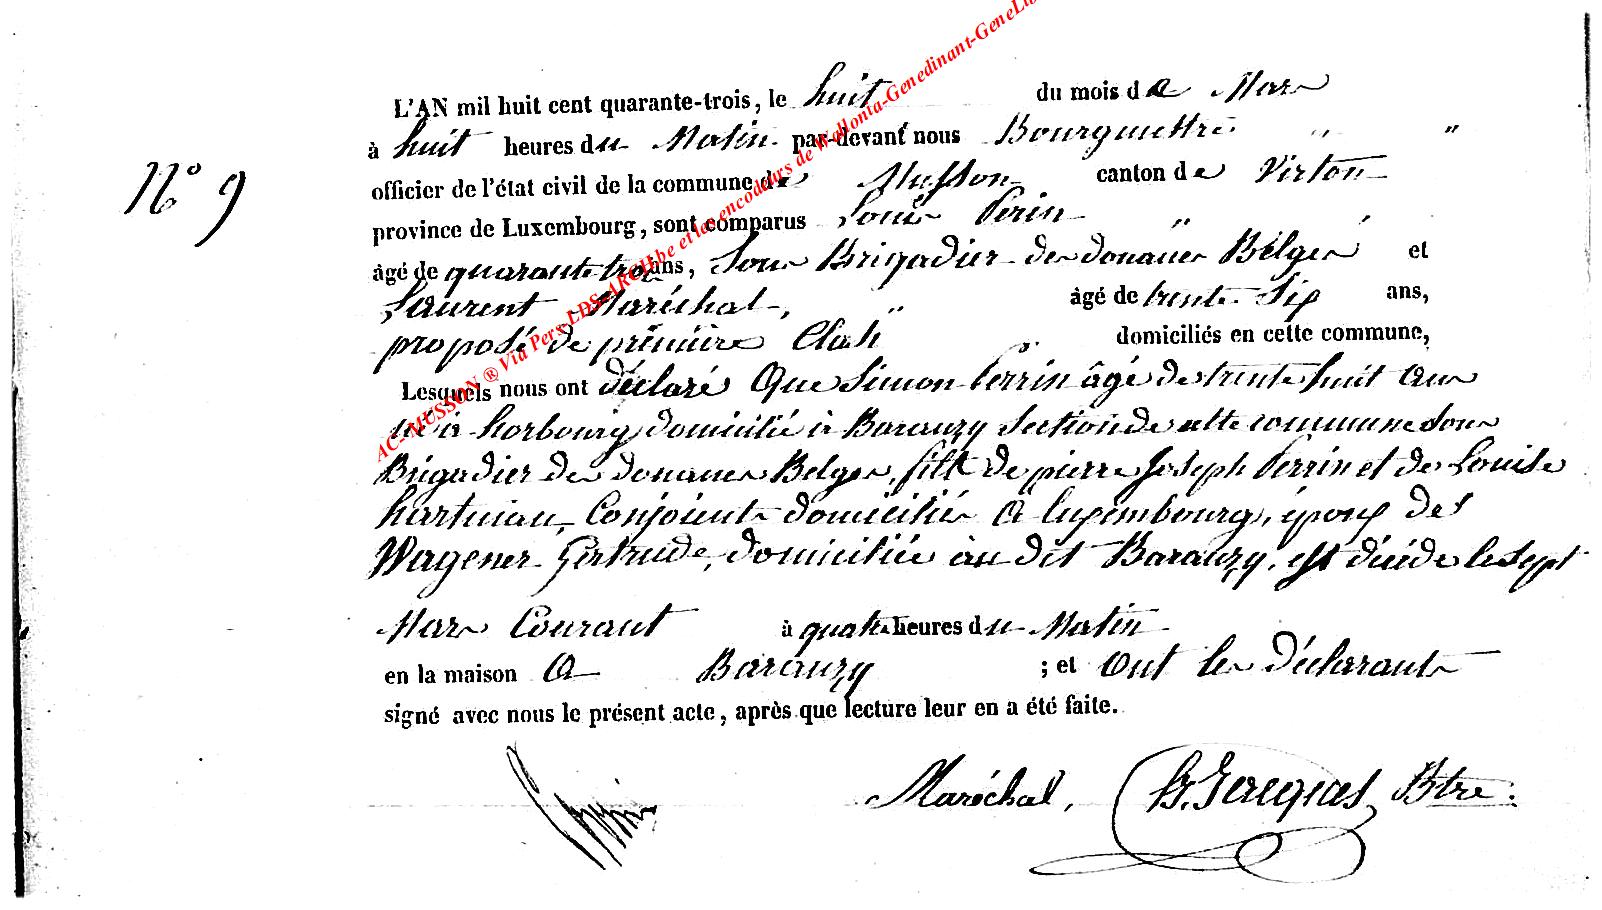 L'AN mil huit cent quarante-trois, le huit du mois de Mars
à huit heures du Matin par-devant nous Bourguettre " "
N° 9
officier de l'état civil de la commune de Musson canton de Virton
province de Luxembourg, sont comparus Louis Perin "
âgé de quarante trois ans, Sous Brigadier des douanes Belges et
Laurent Maréchal, " âgé de trente Six ans,
proposé de première Clase domiciliés en cette commune,
Lesquels nous ont déclaré Que Simon Perrin âgé de trente huit ans
né à horbourg domicilié à Baranzy Section de cette commune Sous
Brigadier des douanes Belges, fils de pierre Joseph Perrin et de Louise
hartman, Conjoients domiciliés à luxembourg, époux de
Wagener Gertrude, domiciliée au dit Baranzy, est décédé le Sept
Mars Courant à quatre heures du Matin
en la maison à Baranzy ; et Ont les déclarants
signé avec nous le présent acte, après que lecture leur en a été faite.
Maréchal, Jacques Btre.
AC-MUSSON ® Via Pers-LDS-ARCH.be et les encodeurs de Wallonia-Genedinant-GeneLib